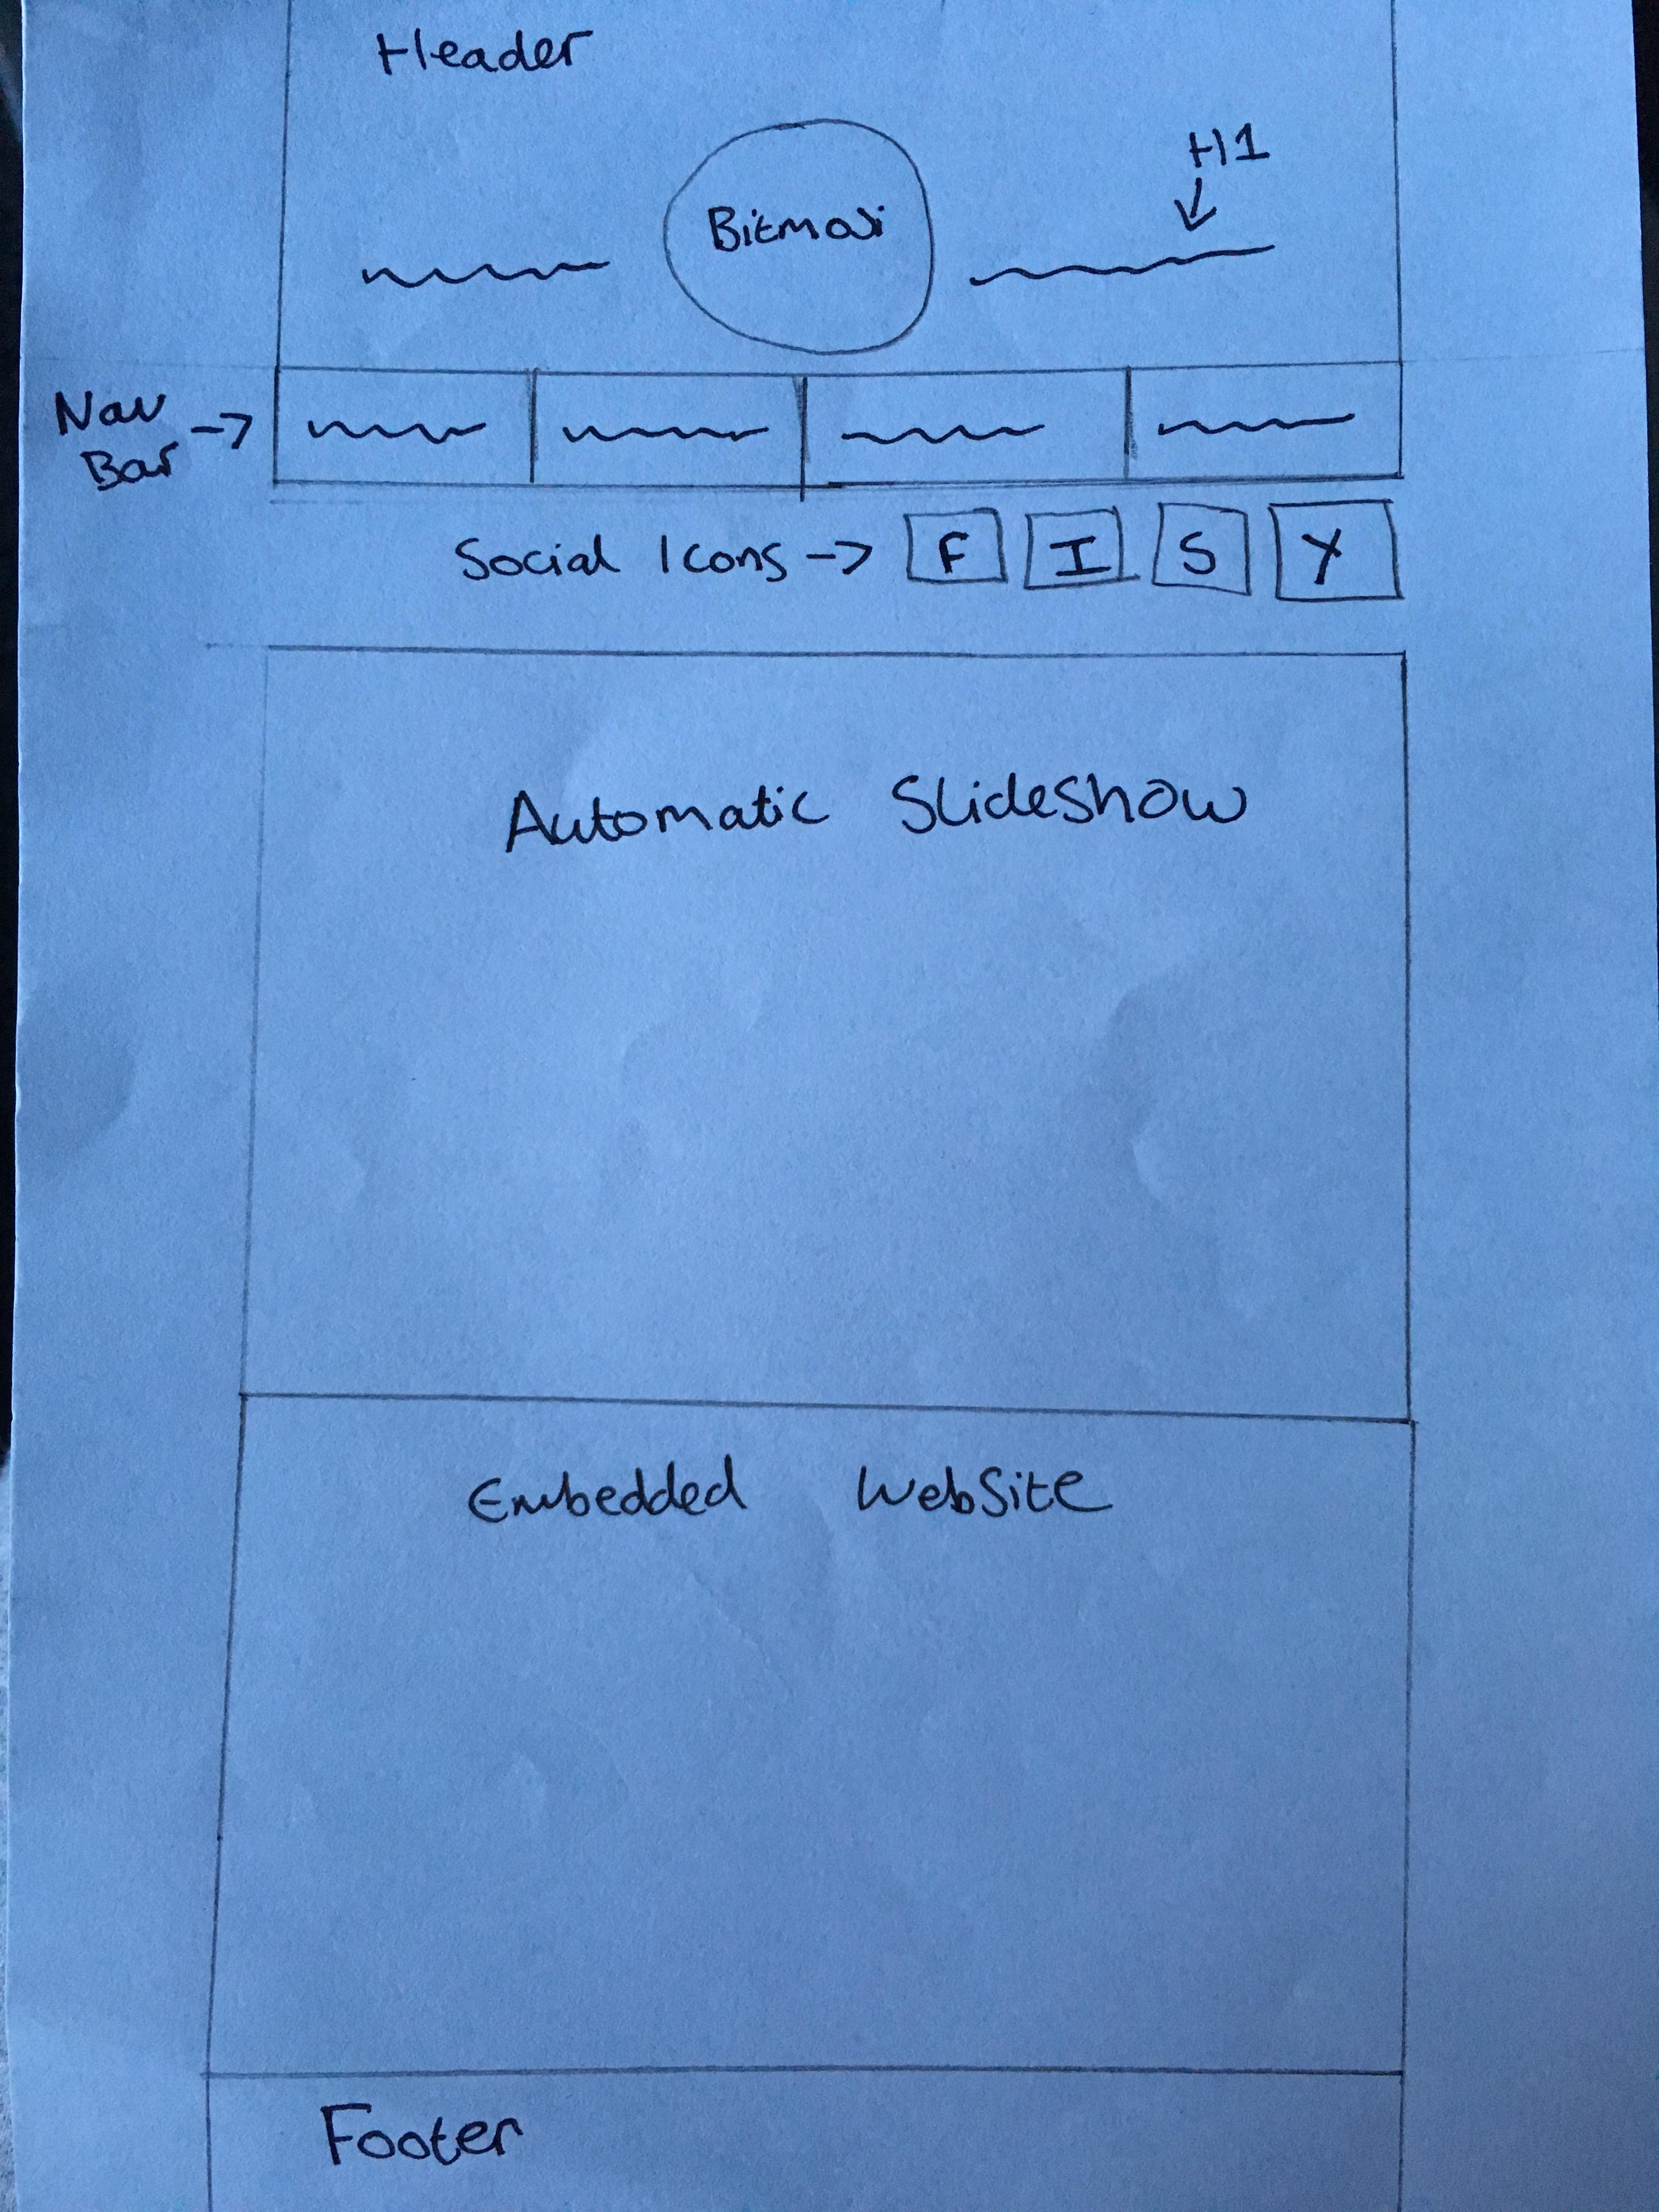 Header
H1
Bitmoji
Nav
Bar ->
Social Icons -> F I S Y
Automatic SlideShow
Embedded WebSite
Footer